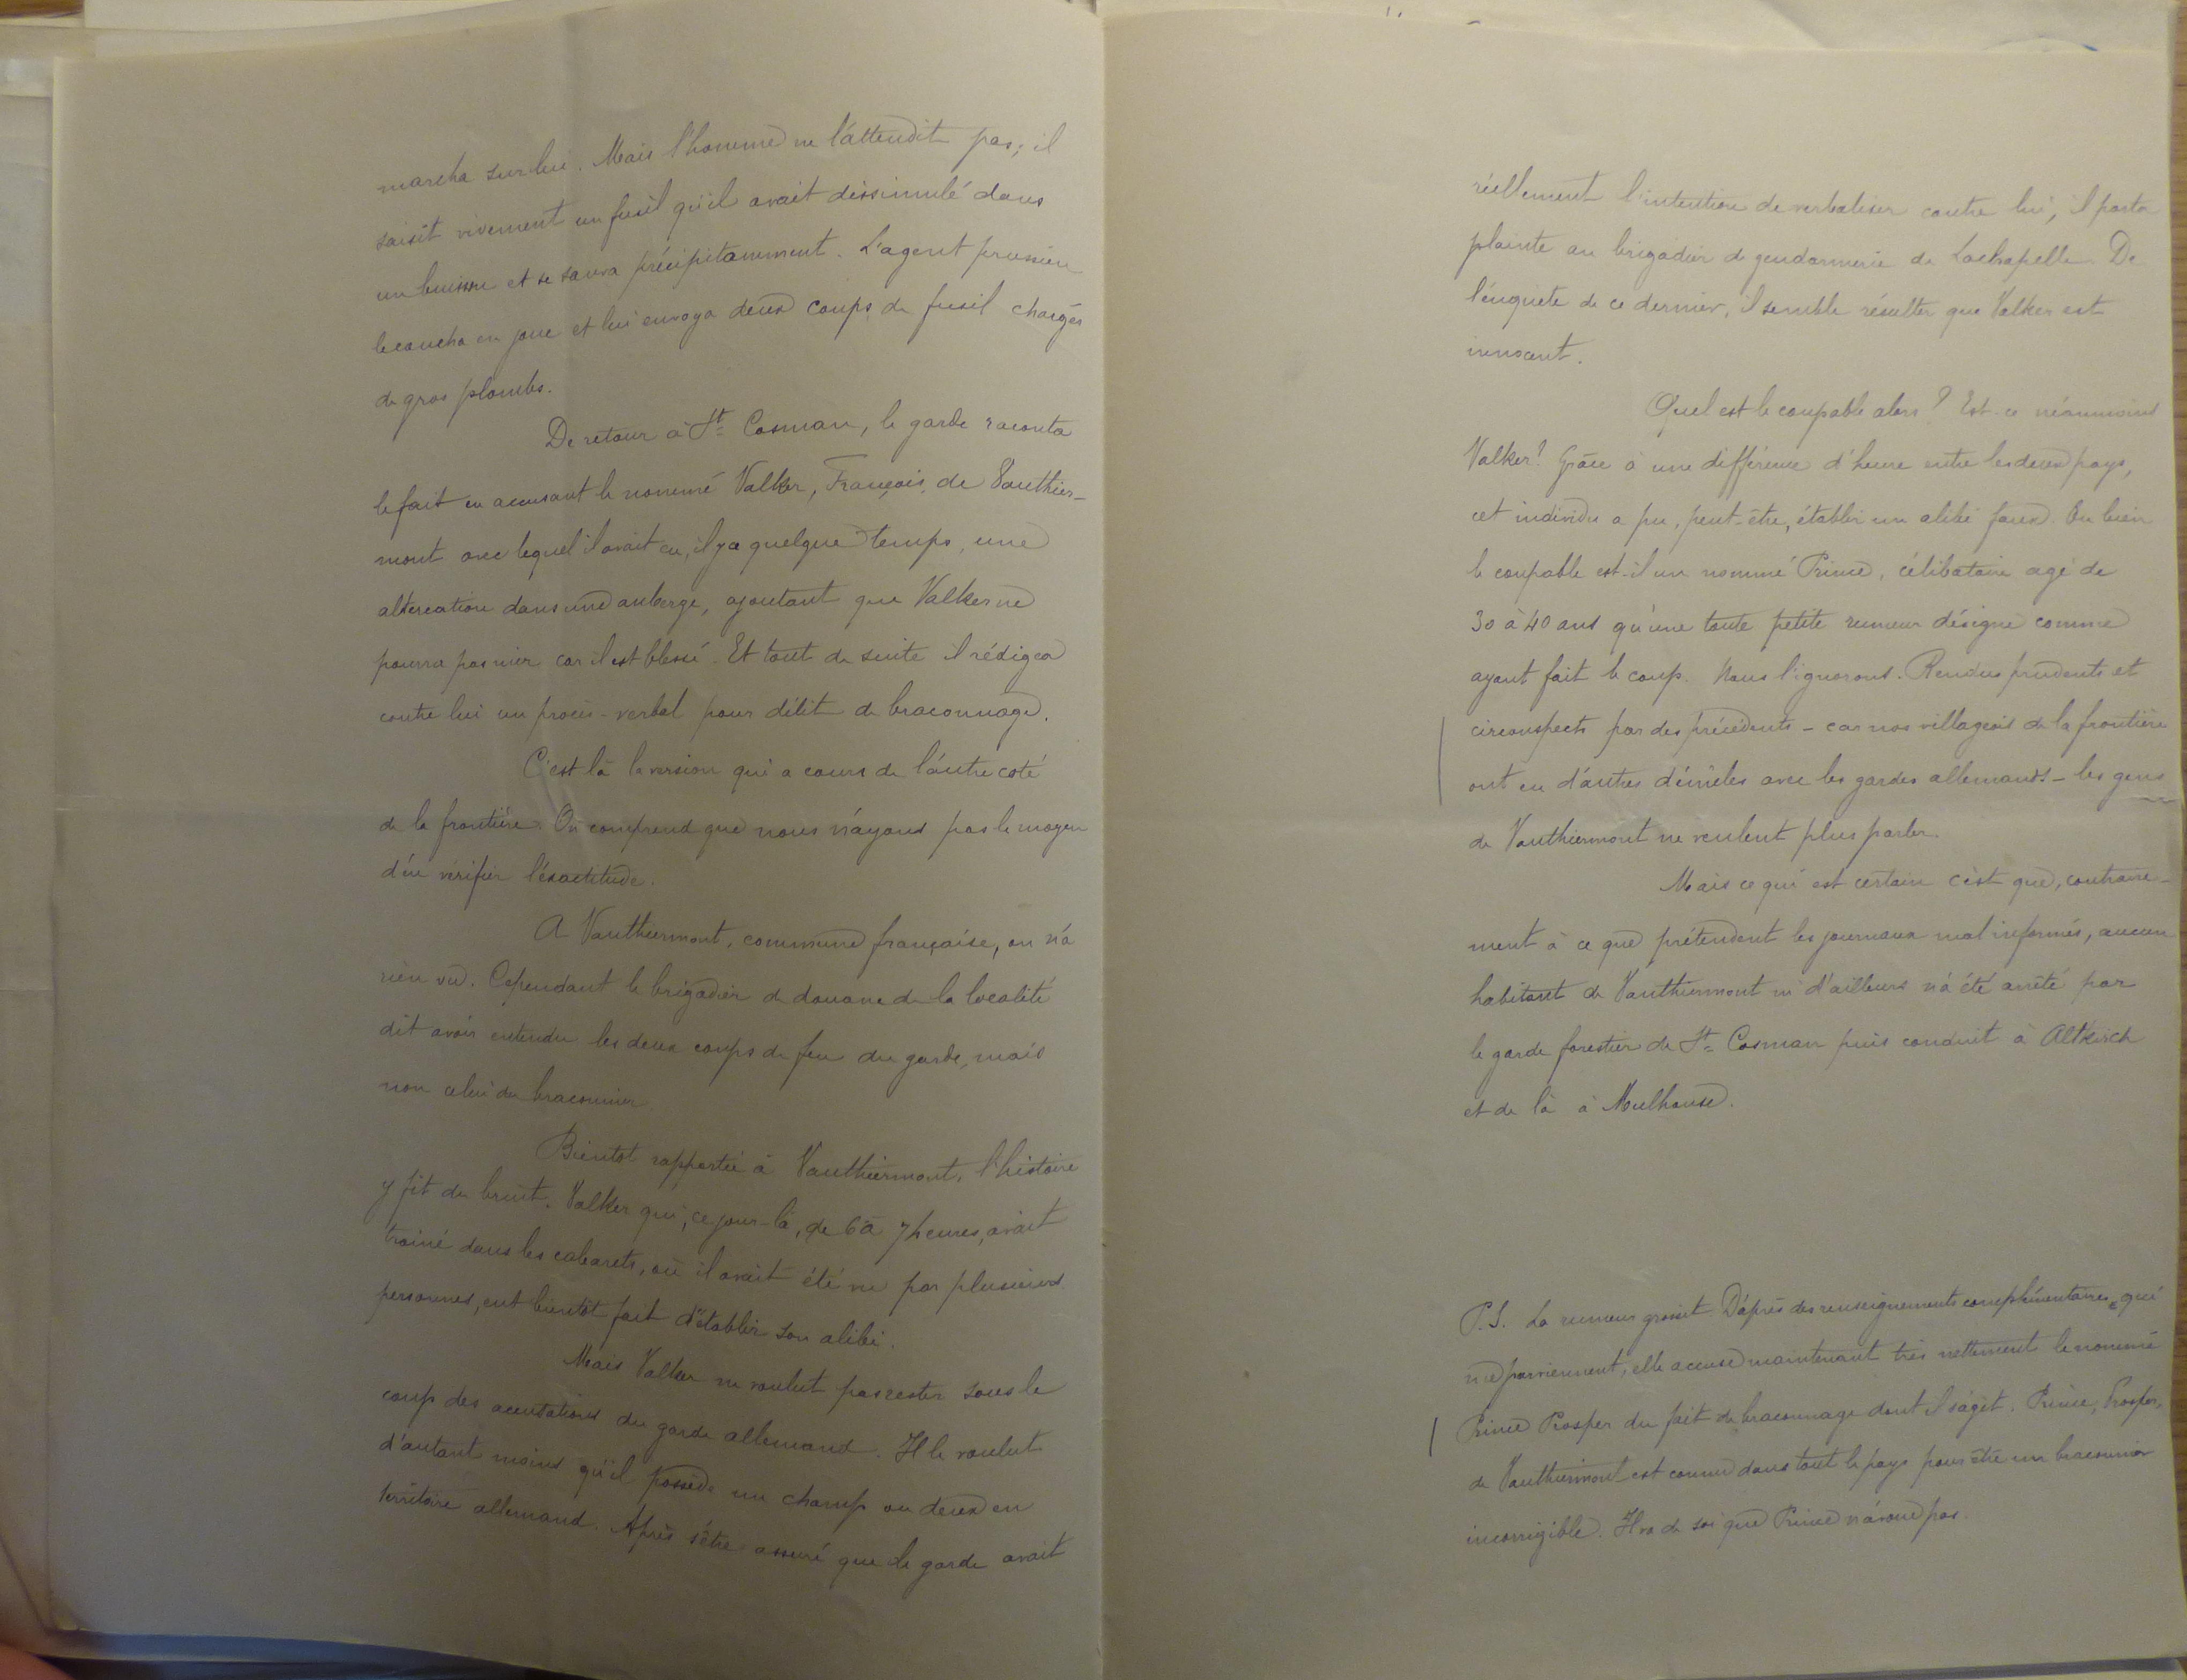 marcha sur lui. Mais l'homme ne l'attendit pas; il
saisit vivement un fusil qu'il avait dissimulé dans
un buisson et se sauva précipitamment. L'agent prussien
le coucha en joue et lui envoya deux coups de fusil chargés
de gros plombs.
De retour à St Cosman, le garde raconta
le fait en accusant le nommé Valker, François, de Vauthier-
mont avec lequel il avait eu, il y a quelque temps, une
altercation dans une auberge, ajoutant que Valker ne
pourra pas nier car il est blessé. Et tout de suite il rédigea
contre lui un procès-verbal pour délit de braconnage.
C'est là la version qui a cours de l'autre coté
de la frontière. On comprend que nous n'ayons pas le moyen
d'en vérifier l'éxactitude.
A Vauthiermont, commune française, on n'a
rien vu. Cependant le brigadier de douane de la localité
dit avoir entendu les deux coups de feu du garde, mais
non celui du braconnier.
Bientot rapportée à Vauthiermont, l'histoire
y fit du bruit. Valker qui, ce jour-là, de 6 à 7 heures, avait
trainé dans les cabarets, où il avait été vu par plusieurs
personnes, eut bientôt fait d'établir son alibi.
Mais Valker ne voulut pas rester sous le
coup des accusations du garde allemand. Il le voulut
d'autant moins qu'il possède un champ ou deux en
territoire allemand. Après s'être assuré que le garde avait
réellement l'intention de verbaliser contre lui, il porta
plainte au brigadier de gendarmerie de Lachapelle. De
l'enquete de ce dernier, il semble résulter que Valker est
innocent.
Quel est le coupable alors? Est-ce néanmoins
Valker? Grâce à une différence d'heure entre les deux pays,
cet individu a pu, peut-être, établir un alibi faux. Ou bien
le coupable est-il un nommé Prince, célibataire agé de
30 à 40 ans qu'une toute petite rumeur désigne comme
ayant fait le coup. Nous l'ignorons. Rendus prudents et
circonspects par des précédents – car nos villageois de la frontière
ont eu d'autres démêlés avec les gardes allemands – les gens
de Vauthiermont ne veulent plus parler.
Mais ce qui est certain c'est que, contraire-
ment à ce que prétendent les journaux mal informés, aucun
habitant de Vauthiermont ni d'ailleurs n'a été arrêté par
le garde forestier de St Cosman puis conduit à Altkirch
et de là à Mulhouse.
P.S. La rumeur grossit. D'après des renseignements complémentaires qui
me parviennent, elle accuse maintenant très nettement le nommé
Prince Prosper du fait de braconnage dont il s'agit. Prince, Prosper,
de Vauthiermont est connu dans tout le pays pour être un braconnier
incorrigible. Il va de soi que Prince n'avoue pas.